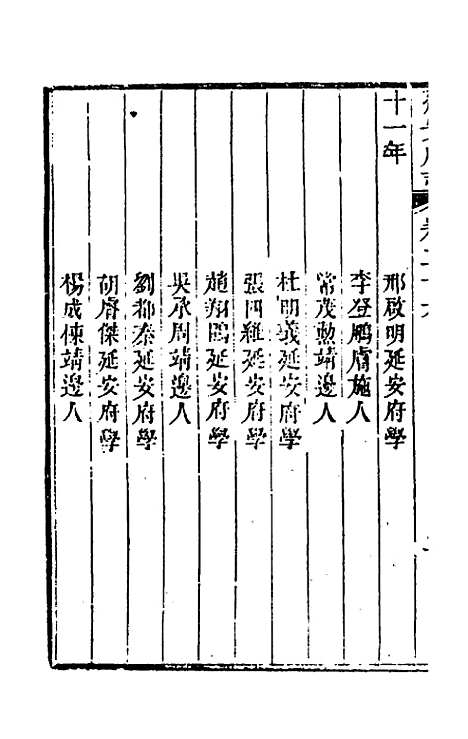 十一年
邢啟明延安府學
李登鵬膚施人
常茂勳靖邊人
杜明義延安府學
張四維延安府學
趙翔鷗延安府學
吳承周靖邊人
劉都秦延安府學
胡膚傑延安府學
楊成棟靖邊人